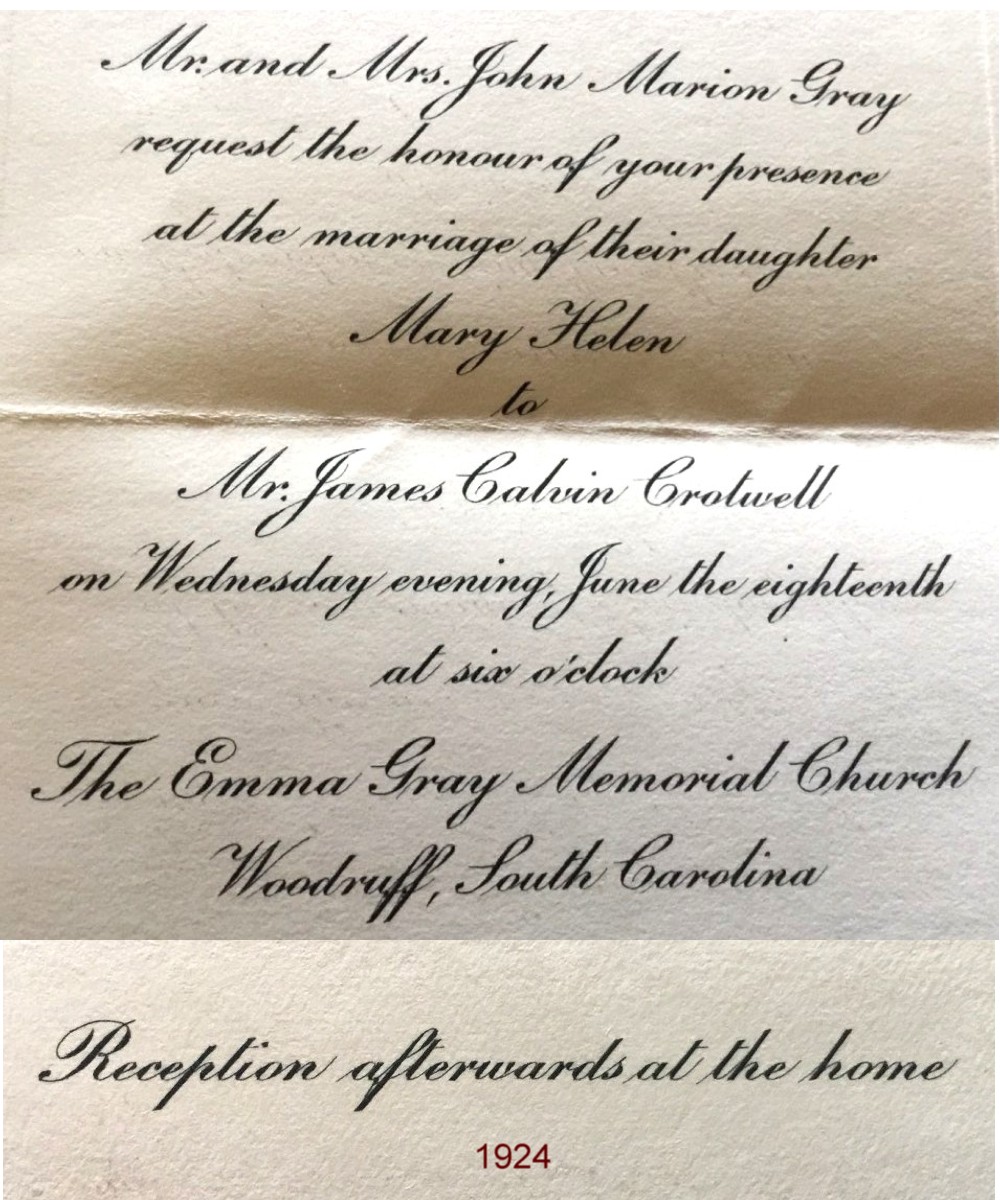 Mr. and Mrs. John Marion Gray
request the honour of your presence
at the marriage of their daughter
Mary Helen
to
Mr. James Calvin Crotwell
on Wednesday evening, June the eighteenth
at six o'clock
The Emma Gray Memorial Church
Woodruff, South Carolina
Reception afterwards at the home
1924